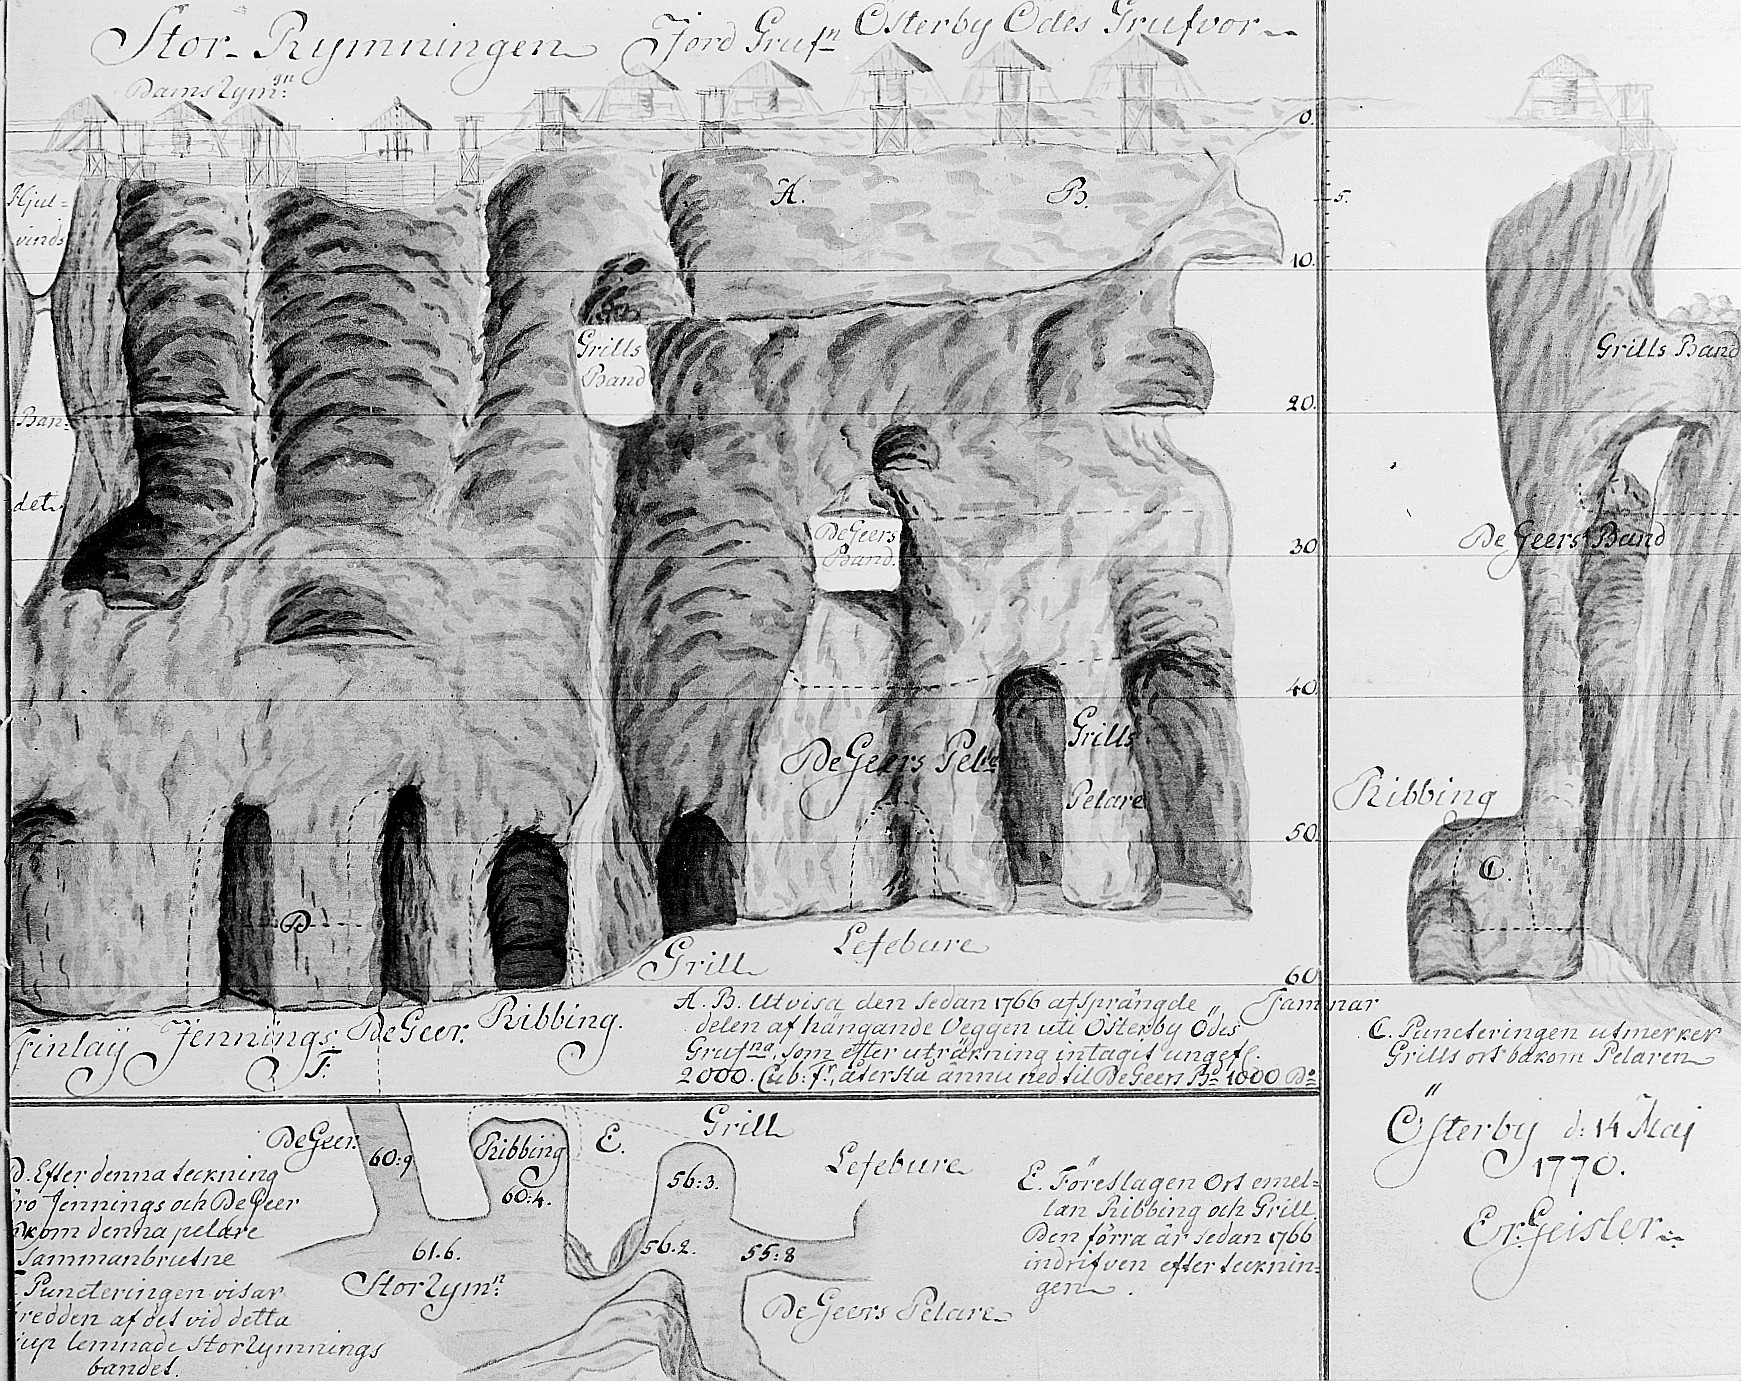 Stor-Rymningen Jord Grufn Österby Ödes Grufvor
Damsrymgn:
0.
Hjul=
vinds
A. B.
5.
10.
Grills
Band
Grills Band
20.
Ban=
det
DeGeers
Band.
30
De Geers Band
40
Grills
DeGeers Pelre
Pelare
Ribbing
50
C.
D
Lefebure
Grill
60
Famnar
Finlaÿ Jennings. DeGeer. Ribbing.
F.
A. B. Utvisa den sedan 1766 afsprängde
delen af hängande Veggen uti Österby Ödes
Grufna, som efter uträkning intagit ungef.
2000. Cub: Fr, återstå ännu ned til DeGeers Bd 1000 Do
C. Puncteringen utmerker
Grills ort bakom Pelaren
Österby d: 14 Maj
1770.
Er. Geisler
DeGeer.
60:9
Ribbing
60:4.
E.
Grill
56:3.
Lefebure
61.6.
56.2.
55:8
Storrymn:
DeGeers Pelare
D. Efter denna teckning
äro Jennings och DeGeer
bakom denna pelare
sammanbrutne
Puncteringen visar
bredden af det vid detta
diup lemnade Storrymnings
bandet.
E. Föreslagen Ort emel=
lan Ribbing och Grill
Den förra är sedan 1766
indrifven efter tecknin=
gen.